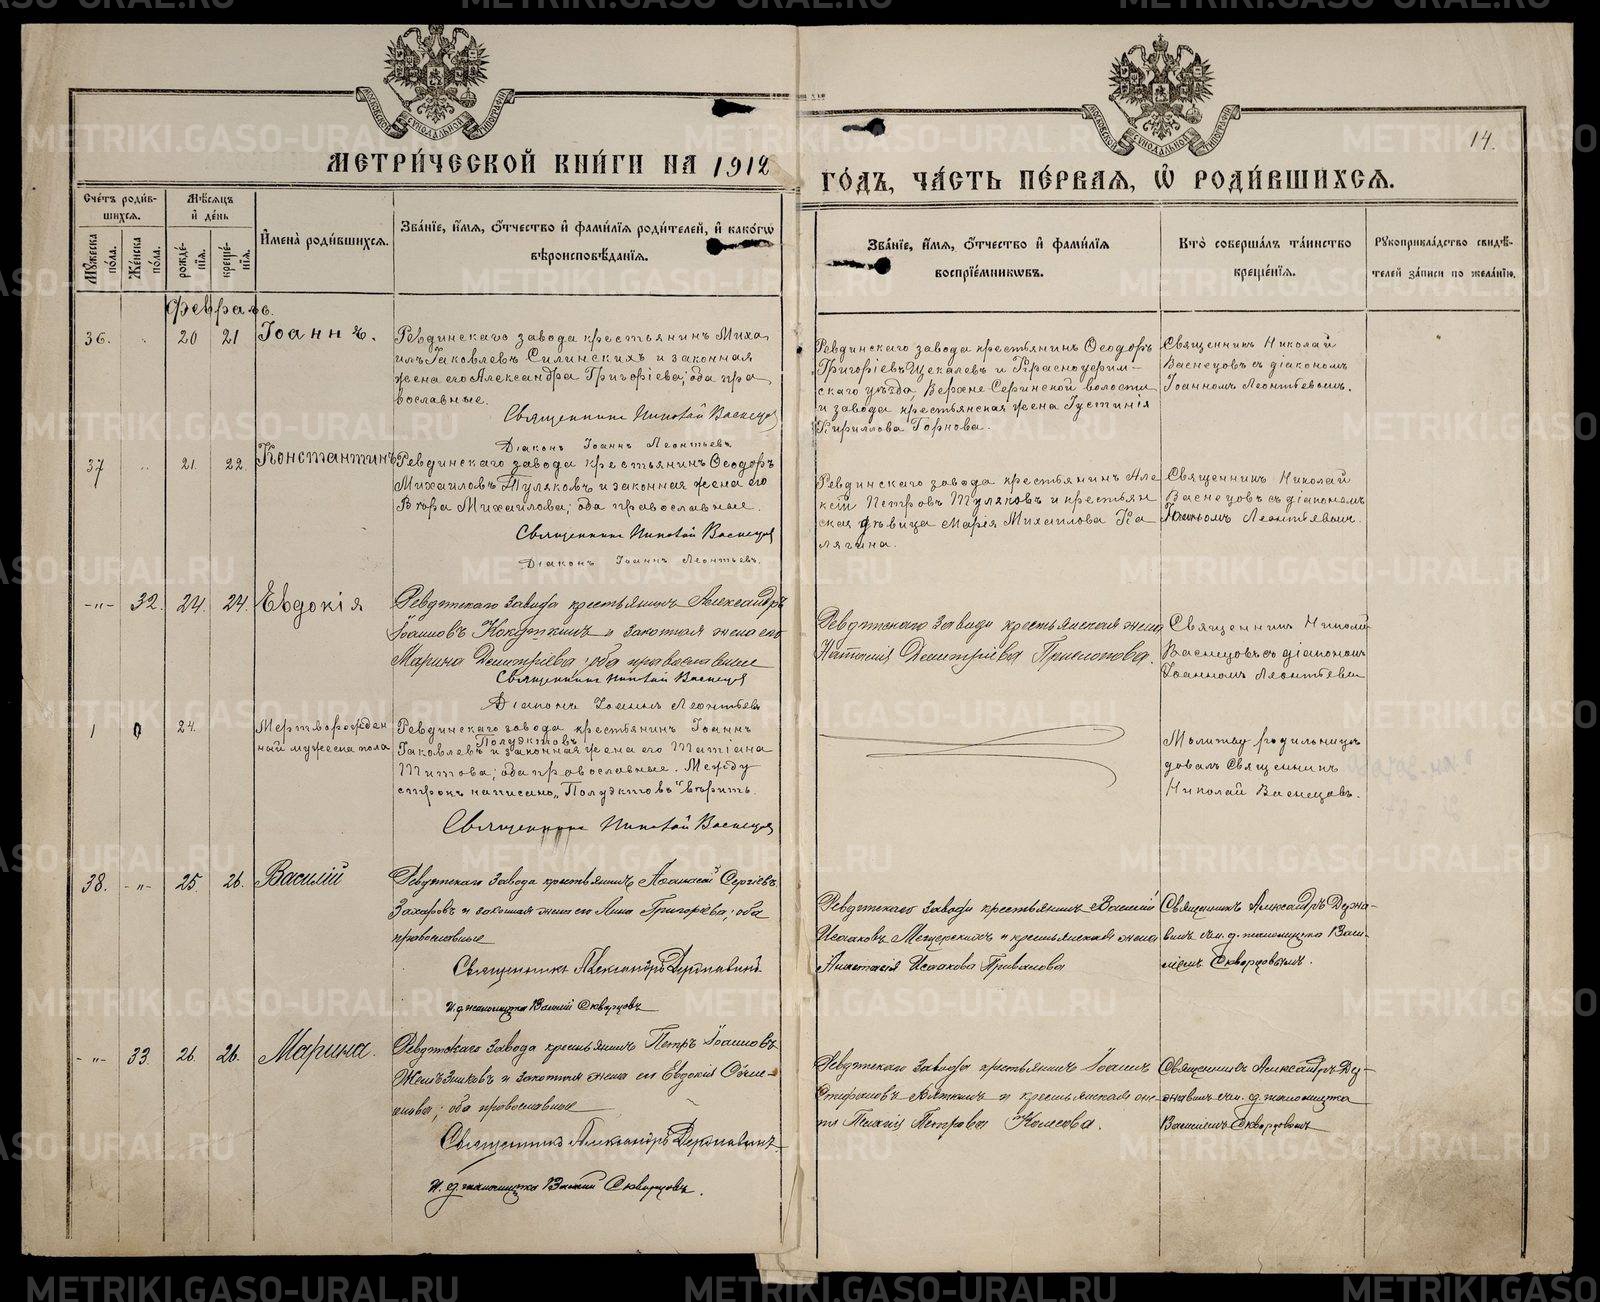 МЕТРИ́ЧЕСКОЙ КНИ́ГИ НА 1912
ГО́ДЪ, ЧА́СТЬ ПЕ́РВАЯ, Ѡ҆ РОДИ́ВШИХСЯ.
14.
Сче́тъ роди́в-
шихся.
Мѣ́сяцъ
и҆ де́нь
Мꙋ́жеска
по́ла.
Же́нска
по́ла.
рожде́-
нїя.
креще́-
нїя.
И҆мена̀ роди́вшихся.
Зва́нїе, и҆́мя, ѻ҆́тчество и҆ фами́лїя роди́телей, и҆ како́гѡ
вѣроисповѣ́данїя.
Зва́нїе, и҆́мя, ѻ҆́тчество и҆ фами́лїя
воспрїе́мникѡвъ.
Кто̀ соверша́лъ та́инство
креще́нїя.
Рꙋкоприкла́дство свидѣ́-
телей за́писи по жела́нїю.
Февраль.
36.
20
21
Іоаннъ.
Ревдинскаго завода крестьянинъ Миха
илъ Іаковлевъ Силинскихъ и законная
жена его Александра Григоріева; оба пра
вославные.
Священникъ Николай Васнецов
Діаконъ Іоаннъ Леонтьевъ
Ревдинскаго завода крестьянинъ Ѳеодоръ
Григоріевъ Щекалевъ и Красноуфим-
скаго уѣзда, Верхне Сергинской волости
и завода крестьянская жена Іустинія
Кириллова Горнова.
Священникъ Николай
Васнецовъ съ діакономъ
Іоанномъ Леонтьевымъ.
37
21.
22.
Константинъ
Ревдинскаго завода крестьянинъ Ѳеодоръ
Михаиловъ Туляковъ и законная жена его
Вѣра Михаилова; оба православные.
Священникъ Николай Васнецов
Діаконъ Іоаннъ Леонтьевъ.
Ревдинскаго завода крестьянинъ Але
ксій Петровъ Туляковъ и крестьян
ская дѣвица Марія Михаилова Ка
лягина.
Священникъ Николай
Васнецовъ съ діакономъ
Іоанномъ Леонтьевымъ.
-"-
32.
24.
24.
Евдокія
Ревдинскаго завода крестьянинъ Александръ
Іоанновъ Кокушкинъ и законная жена его
Марина Димитріева; оба православные
Священникъ Николай Васнецов
Діаконъ Іоаннъ Леонтьевъ
Ревдинскаго завода крестьянская жена
Наталія Димитріева Прислопова.
Священникъ Николай
Васнецовъ съ діакономъ
Іоанномъ Леонтьевы
1
0
24.
Мертворожден
ный мужеска пола
Ревдинскаго завода крестьянинъ Іоаннъ
Полуэктовъ
Іаковлевъ и законная жена его Татіана
Титова; оба православные. Между
строкъ написано „Полуэктовъ" вѣрить.
Священникъ Николай Васнецов
Молитву родильницѣ
давалъ Священникъ
Николай Васнецовъ.
38.
-"-
25.
26.
Василій
Ревдинскаго завода крестьянинъ Аѳанасій Сергіевъ
Захаровъ и законная жена его Анна Григоріева; оба
православные
Священникъ Александръ Державинъ
И. д. псаломщика Василій Скворцовъ
Ревдинскаго завода крестьянинъ Василій
Исааковъ Мещерскихъ и крестьянская жена
Анастасія Исаакова Привалова
Священникъ Александръ Держа-
винъ съ и. д. псаломщика Васи-
ліемъ Скворцовымъ.
-"-
33.
26.
26.
Марина.
Ревдинскаго завода крестьянинъ Петръ Іоанновъ
Желѣзниковъ и законная жена его Евдокія
оба православные
Священникъ Александръ Державинъ
И. д. псаломщика Василій Скворцовъ.
Ревдинскаго завода крестьянинъ Іоаннъ
Стефановъ Вяткинъ и крестьянская же-
на Пелагія Петрова Колесова.
Священникъ Александръ Дер-
жавинъ съ и. д. псаломщика
Василіемъ Скворцовымъ
METRIKI.GASO-URAL.RU